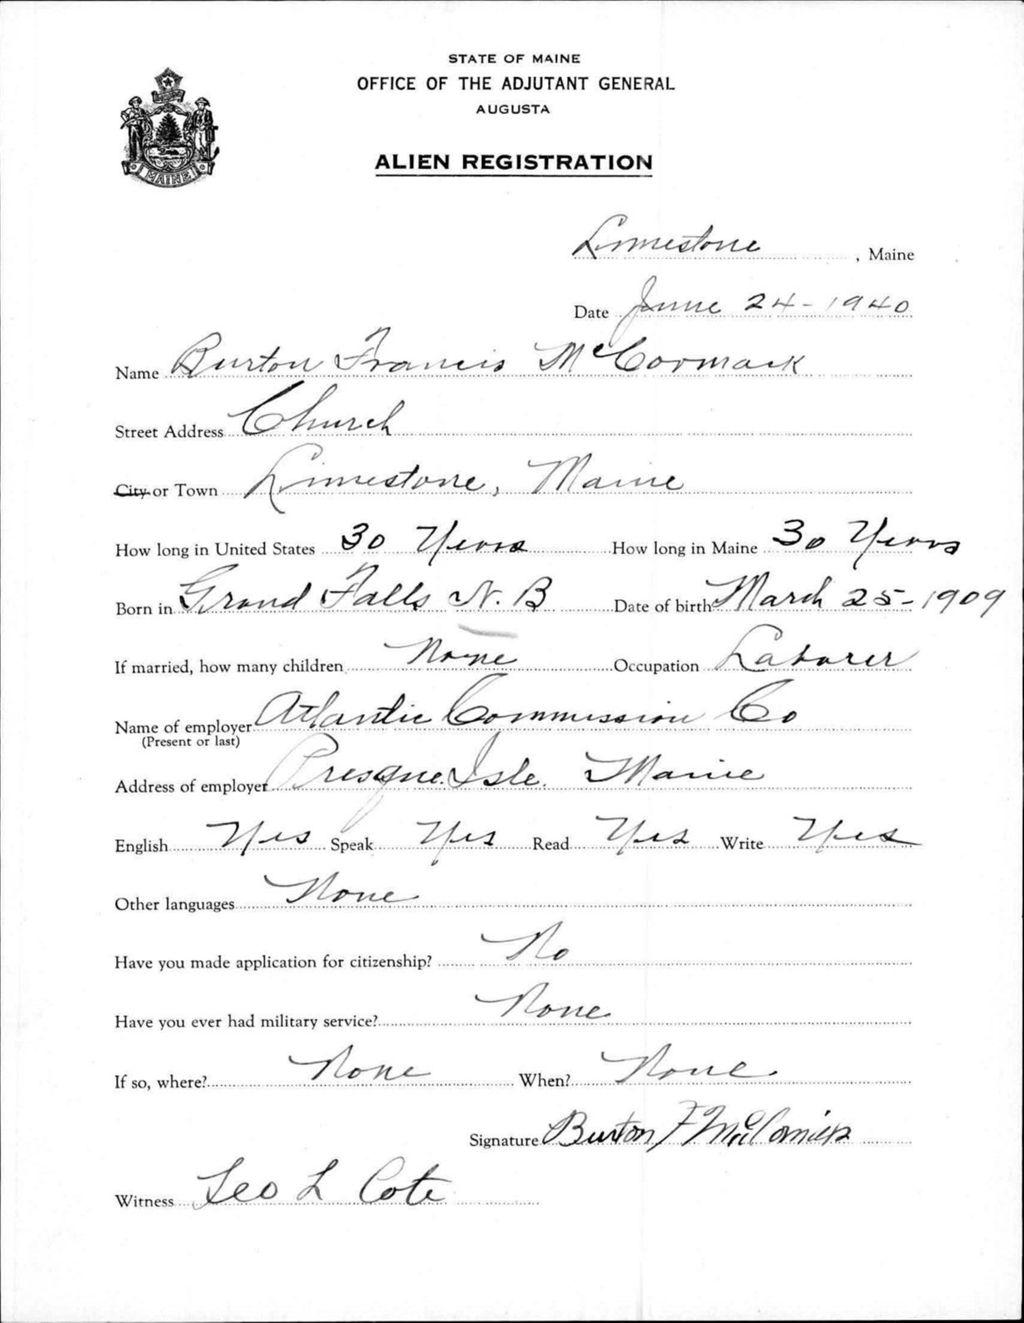 STATE OF MAINE
OFFICE OF THE ADJUTANT GENERAL
AUGUSTA
ALIEN REGISTRATION
MAINE
Limestone, Maine
Date June 24-1940
Name Burton Francis McCormack
Street Address Church
City or Town Limestone, Maine
How long in United States 30 Years How long in Maine 30 Years
Born in Grand Falls N. B Date of birth March 25-1909
If married, how many children None Occupation Laborer
Name of employer Atlantic Commission Co
(Present or last)
Address of employer Presque Isle. Maine
English Yes Speak Yes Read Yes Write Yes
Other languages None
Have you made application for citizenship? No
Have you ever had military service? None
If so, where? None When? None
Signature Burton F
Witness Leo L Cote